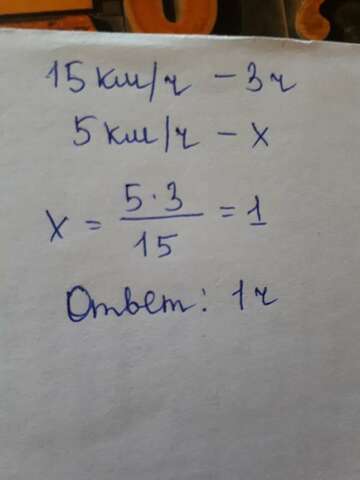 15 км/ч - 3ч
5 км/ч - x
x = 5·3/15 = 1
Ответ: 1ч